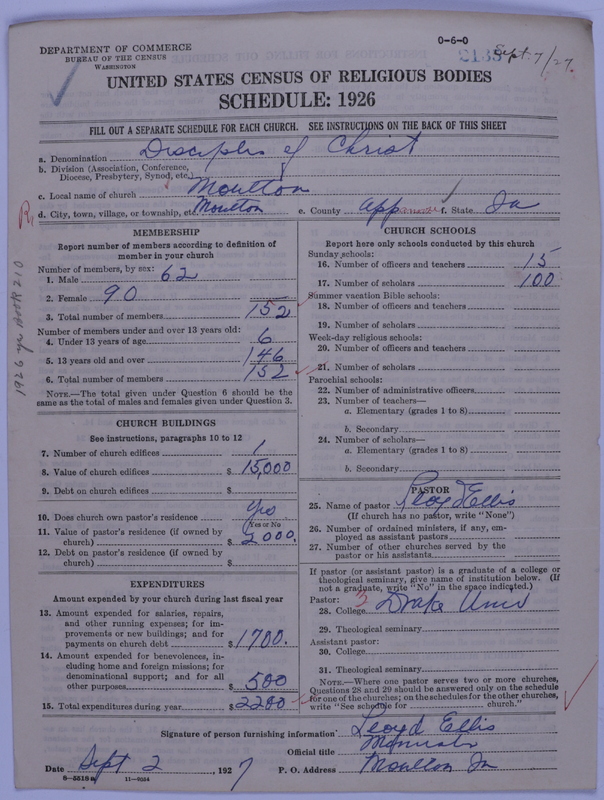 DEPARTMENT OF COMMERCE
BUREAU OF THE CENSUS
WASHINGTON
0-6-0
Sept. 7/27.
UNITED STATES CENSUS OF RELIGIOUS BODIES
SCHEDULE: 1926
FILL OUT A SEPARATE SCHEDULE FOR EACH CHURCH. SEE INSTRUCTIONS ON THE BACK OF THIS SHEET
a. Denomination Disciples of Christ
b. Division (Association, Conference, Diocese, Presbytery, Synod, etc.)
c. Local name of church Moulton
d. City, town, village, or township, etc. Moulton e. County Appanoose f. State Ia
1926 yr Book 210
MEMBERSHIP
Report number of members according to definition of
member in your church
Number of members, by sex:
1. Male 62
2. Female 90
3. Total number of members 152
Number of members under and over 13 years old:
4. Under 13 years of age 6
5. 13 years old and over 146
6. Total number of members 152
NOTE.—The total given under Question 6 should be the
same as the total of males and females given under Question 3.
CHURCH BUILDINGS
See instructions, paragraphs 10 to 12
7. Number of church edifices 1
8. Value of church edifices $15,000
9. Debt on church edifices $
10. Does church own pastor's residence Yes
Yes or No
11. Value of pastor's residence (if owned by
church) $2000.
12. Debt on pastor's residence (if owned by
church) $
EXPENDITURES
Amount expended by your church during last fiscal year
13. Amount expended for salaries, repairs,
and other running expenses; for im-
provements or new buildings; and for
payments on church debt $1700.
14. Amount expended for benevolences, in-
cluding home and foreign missions; for
denominational support; and for all
other purposes $500
15. Total expenditures during year $2200
CHURCH SCHOOLS
Report here only schools conducted by this church
Sunday schools:
16. Number of officers and teachers 15
17. Number of scholars 100
Summer vacation Bible schools:
18. Number of officers and teachers
19. Number of scholars
Week-day religious schools:
20. Number of officers and teachers
21. Number of scholars
Parochial schools:
22. Number of administrative officers
23. Number of teachers—
a. Elementary (grades 1 to 8)
b. Secondary
24. Number of scholars—
a. Elementary (grades 1 to 8)
b. Secondary
PASTOR
25. Name of pastor Lloyd Ellis
(If church has no pastor, write "None")
26. Number of ordained ministers, if any, em-
ployed as assistant pastors
27. Number of other churches served by the
pastor or his assistants
If pastor (or assistant pastor) is a graduate of a college or
theological seminary, give name of institution below. (If
not a graduate, write "No" in the space indicated.)
Pastor:
28. College 3 Drake Univ
29. Theological seminary
Assistant pastor:
30. College
31. Theological seminary
NOTE.—Where one pastor serves two or more churches,
Questions 28 and 29 should be answered only on the schedule
for one of the churches; on the schedules for the other churches,
write "See schedule for church."
Signature of person furnishing information Lloyd Ellis
Official title Minister
Date Sept 2, 1927 P. O. Address Moulton Ia
8—5518a 11—9034